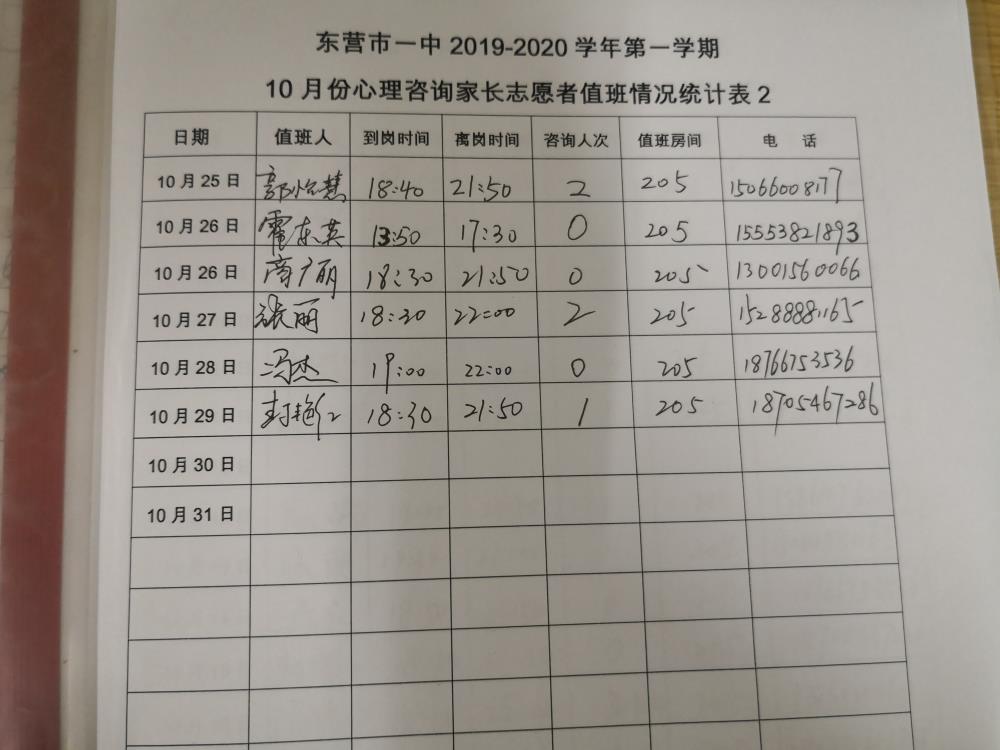 东营市一中 2019-2020 学年第一学期
10 月份心理咨询家长志愿者值班情况统计表 2
日期 值班人 到岗时间 离岗时间 咨询人次 值班房间 电 话
10 月 25 日 郭怡慧 18:40 21:50 2 205 15066008177
10 月 26 日 霍东英 13:50 17:30 0 205 15553821893
10 月 26 日 商广丽 18:30 21:50 0 205 13001560066
10 月 27 日 张丽 18:30 22:00 2 205 15288881165
10 月 28 日 冯杰 19:00 22:00 0 205 18766753536
10 月 29 日 封艳红 18:30 21:50 1 205 18705467286
10 月 30 日
10 月 31 日